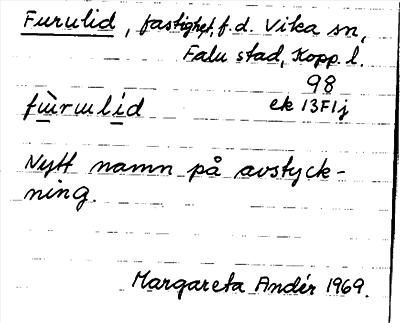 Furulid, fastighet, f.d. Vika sn,
Falu stad, Kopp. l.
98
fùrɯlid ek 13F1j
Nytt namn på avstyck-
ning.
Margareta Andér 1969.